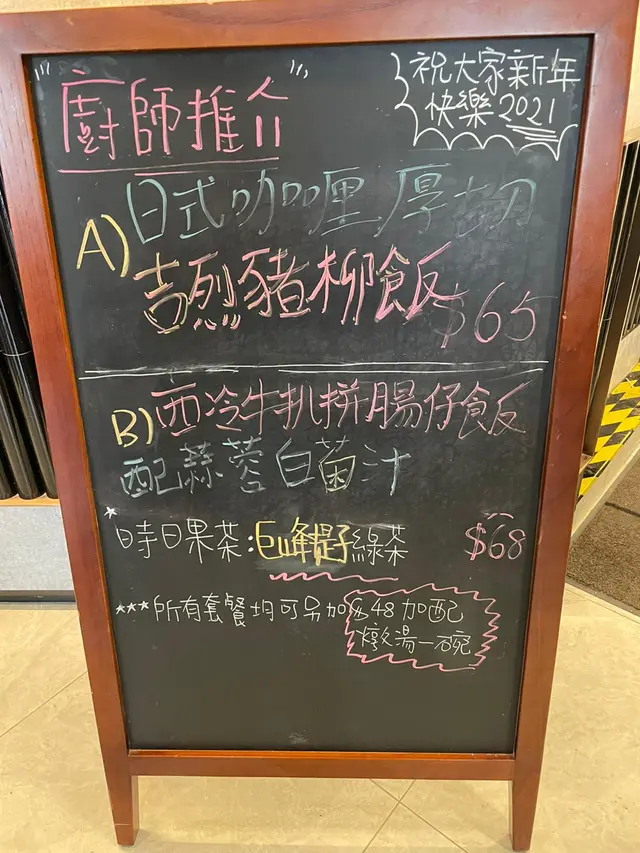 "廚師推介"
祝大家新年
快樂2021
A)日式咖喱厚切
吉烈豬柳飯 $65
B)西冷牛扒拼腸仔飯
配蒜蓉白菌汁
*時日果茶:巨峰提子綠茶 $68
***所有套餐均可另加$48加配
燉湯一碗